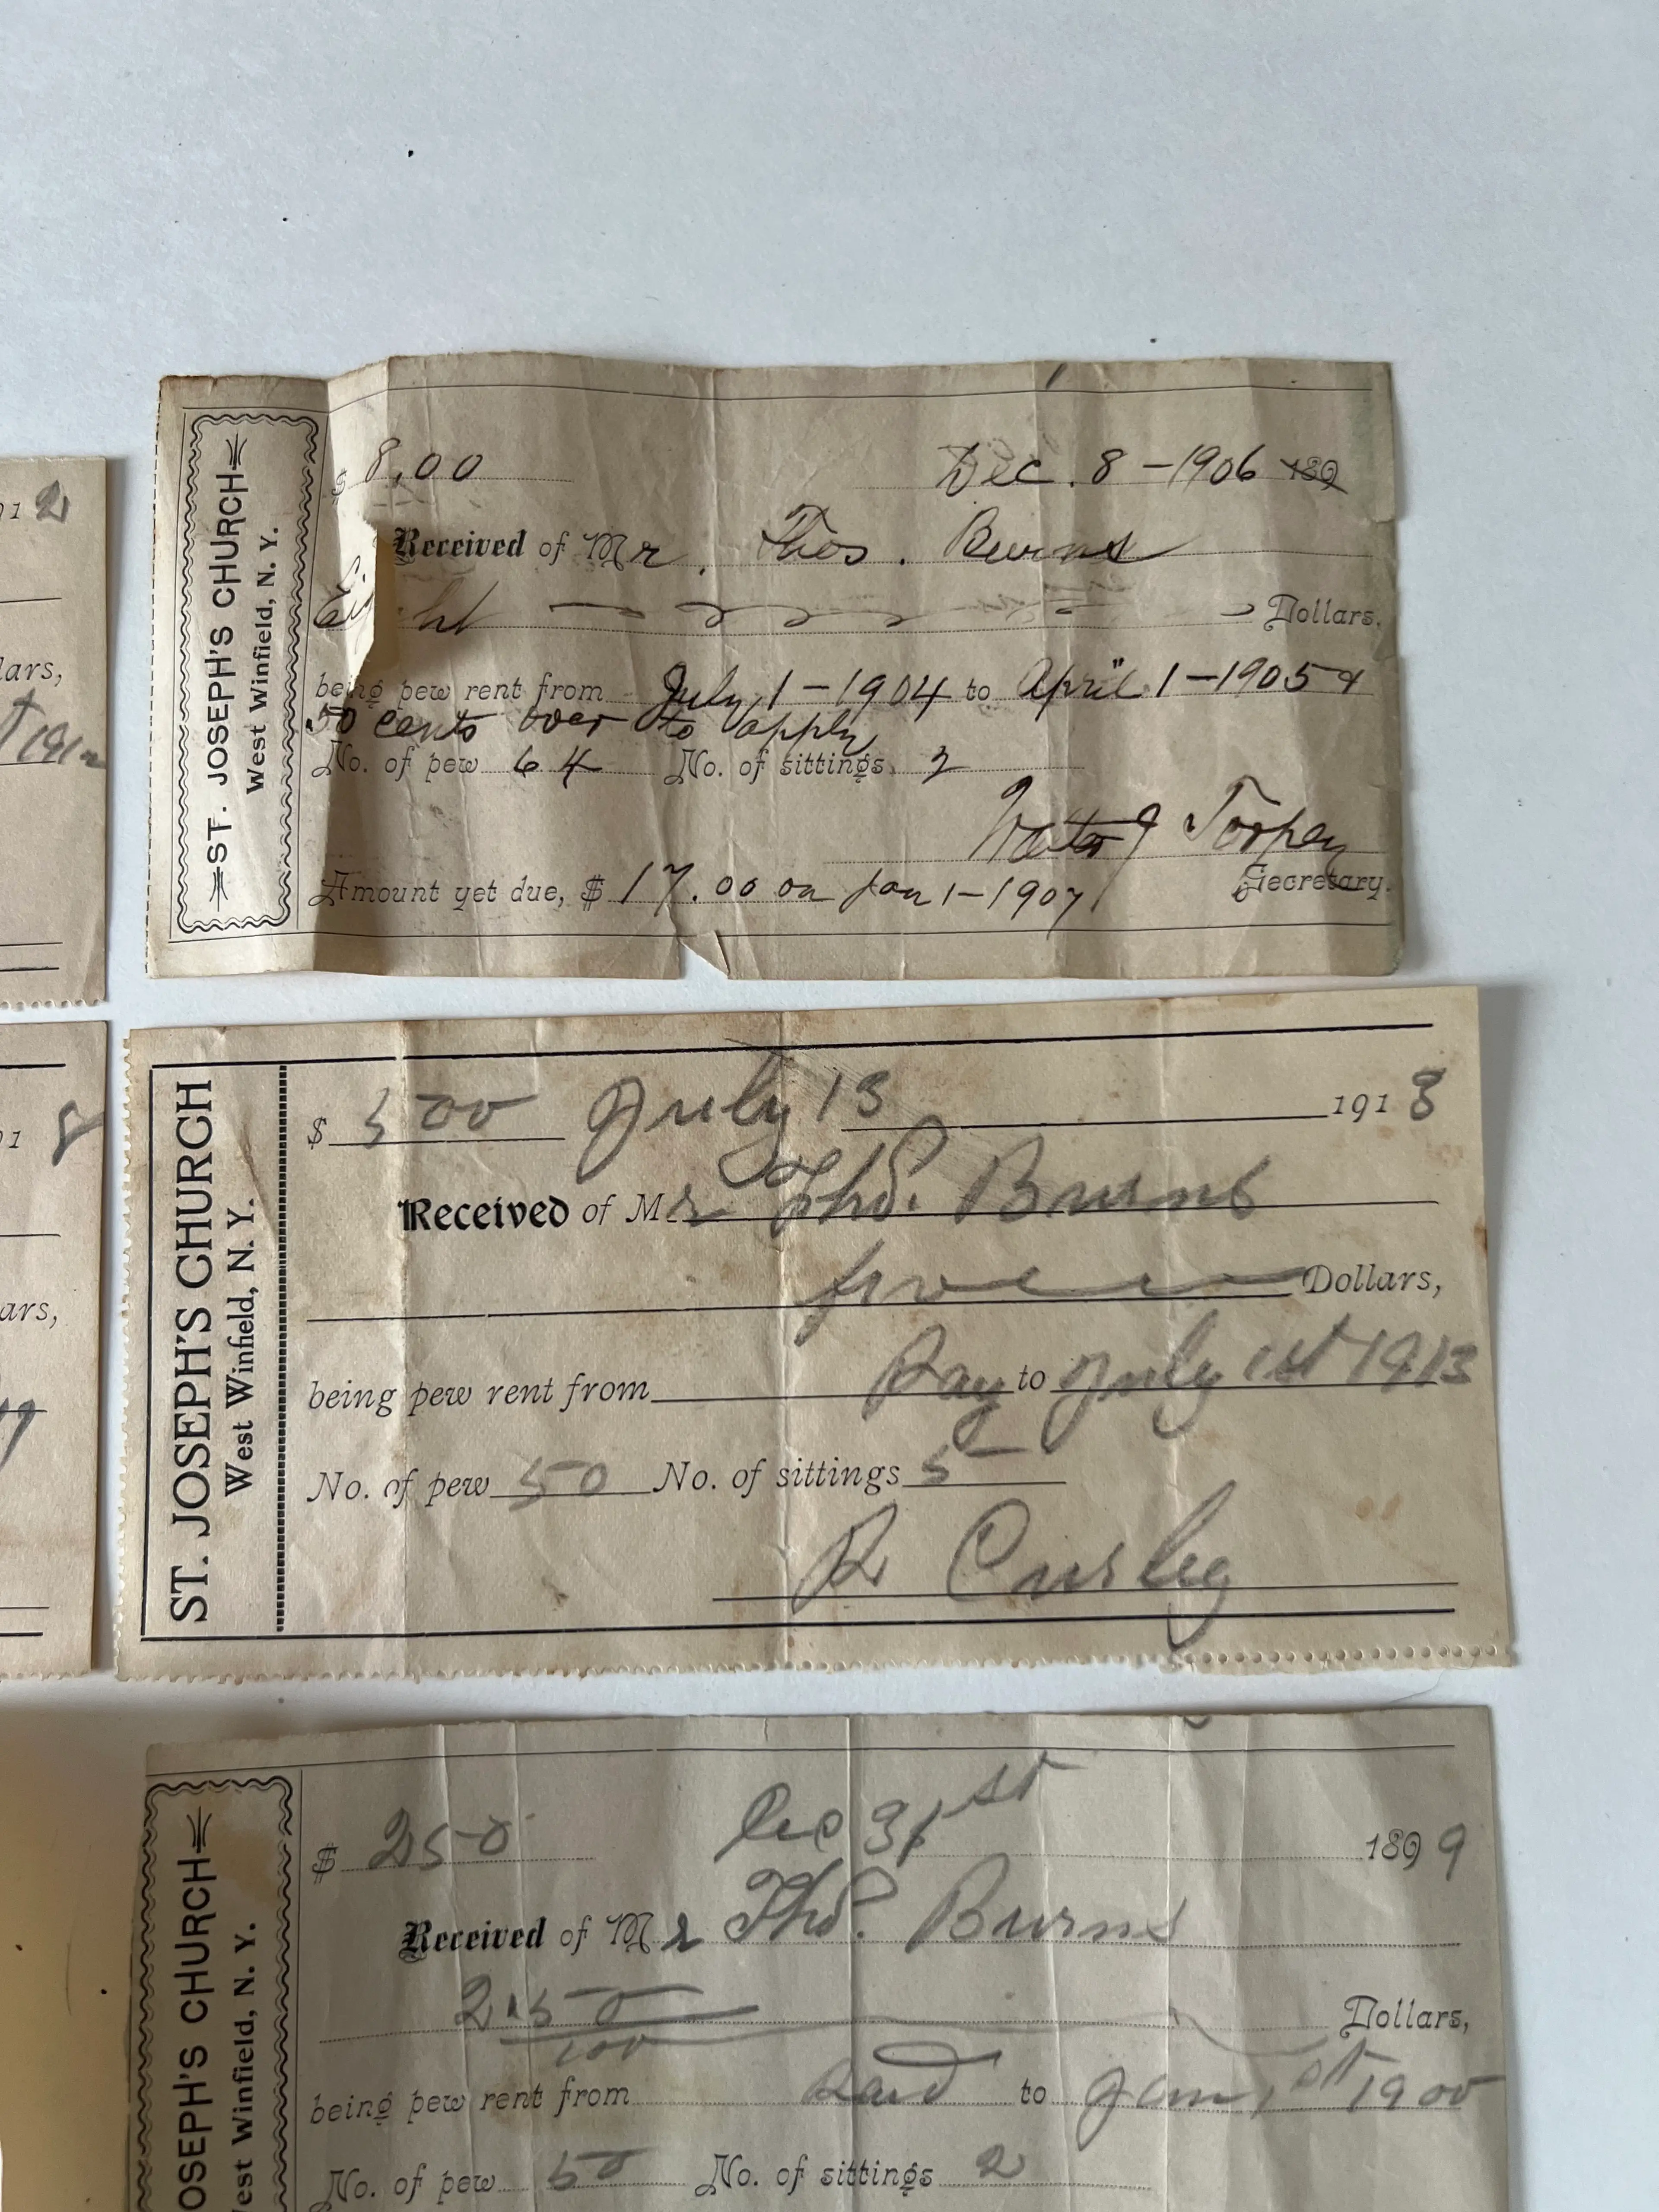 ST. JOSEPH'S CHURCH
West Winfield, N. Y.
$ 8.00 Dec. 8 - 1906 189
Received of Mr. Thos. Burns
Eight Dollars.
being pew rent from July 1 - 1904 to April 1 - 1905 &
50 cents over to apply
No. of pew 64 No. of sittings 2
Walter J Torpey
Secretary.
Amount yet due, $ 17.00 on Jan 1 - 1907
ST. JOSEPH'S CHURCH
West Winfield, N. Y.
$ 500 July 13 1913
Received of Mr Thos. Burns
five Dollars,
being pew rent from Pay to July 1st 1913
No. of pew 50 No. of sittings 5
R
OSEPH'S CHURCH
est Winfield, N. Y.
$ 250 Dec 31st 1899
Received of Mr Thos. Burns
2.50/100 Dollars,
being pew rent from Paid to Jan 1st 1900
No. of pew 50 No. of sittings 2
91 2
lars,
1912
91 8
ars,